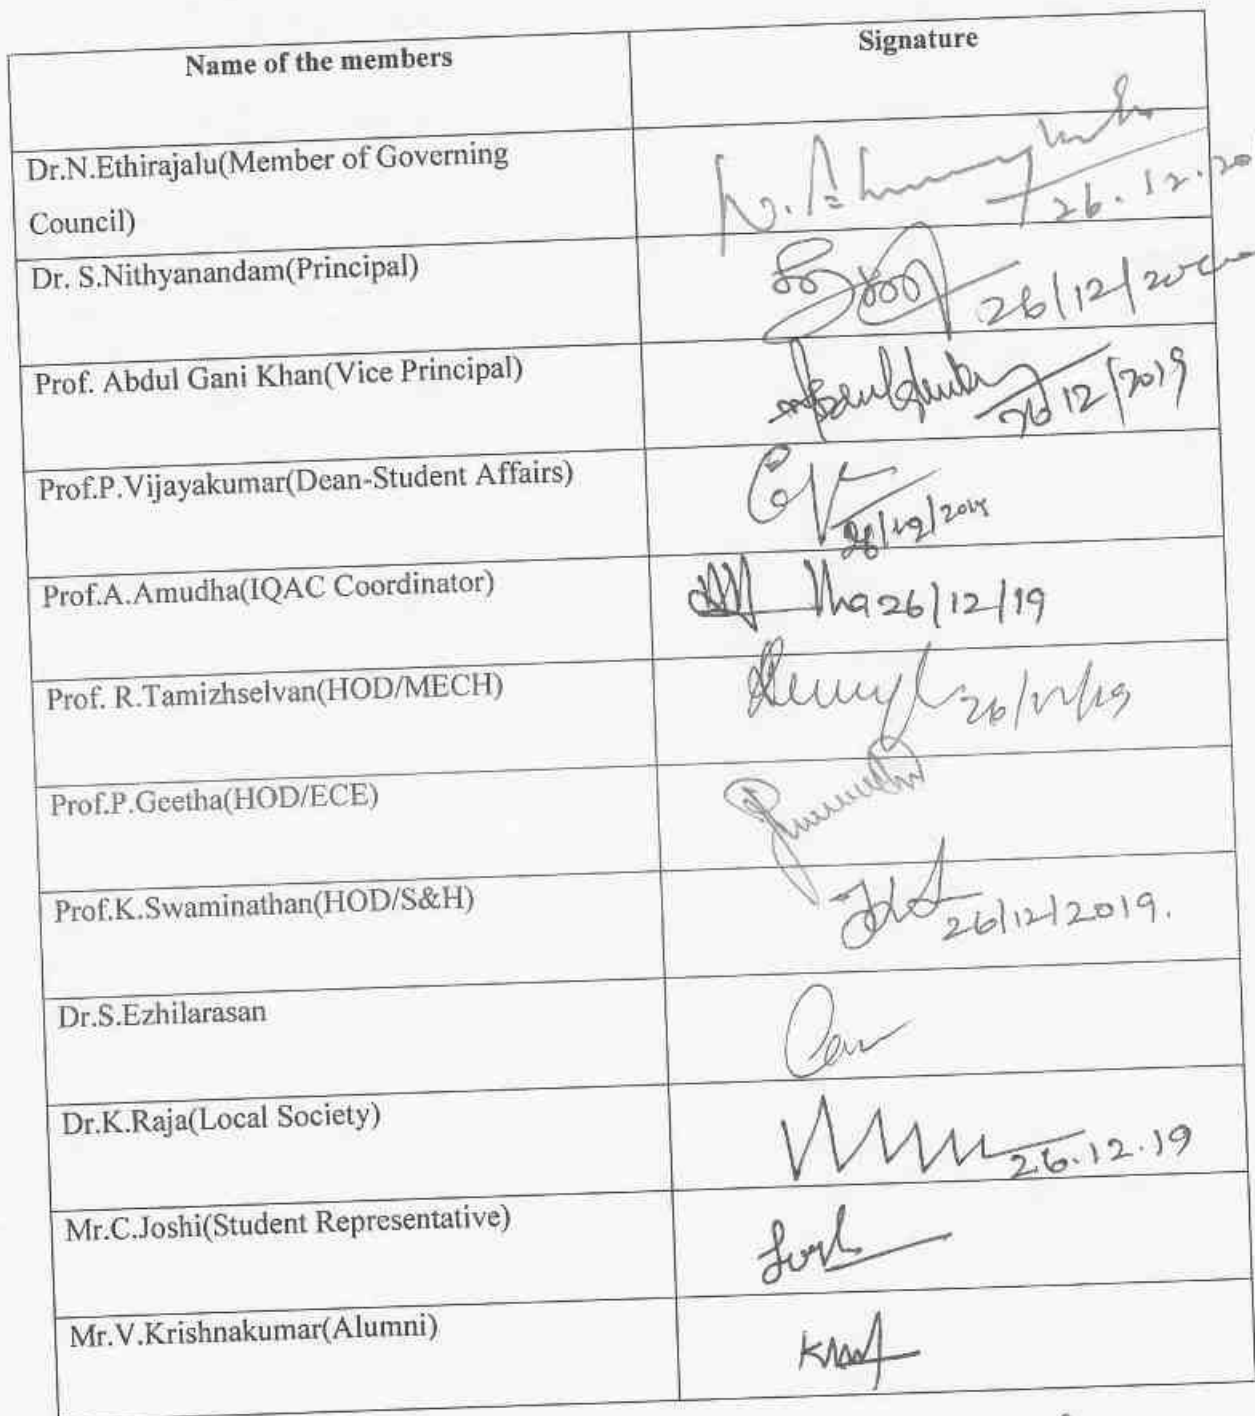 Name of the members Signature
Dr.N.Ethirajalu(Member of Governing
Council)
26.12.20
Dr. S.Nithyanandam(Principal)
26/12/20
Prof. Abdul Gani Khan(Vice Principal)
26/12/2019
Prof.P.Vijayakumar(Dean-Student Affairs)
26/12/2019
Prof.A.Amudha(IQAC Coordinator)
26/12/19
Prof. R.Tamizhselvan(HOD/MECH)
26/12/19
Prof.P.Geetha(HOD/ECE)
Prof.K.Swaminathan(HOD/S&H)
26/12/2019.
Dr.S.Ezhilarasan
Dr.K.Raja(Local Society)
26.12.19
Mr.C.Joshi(Student Representative)
Mr.V.Krishnakumar(Alumni)